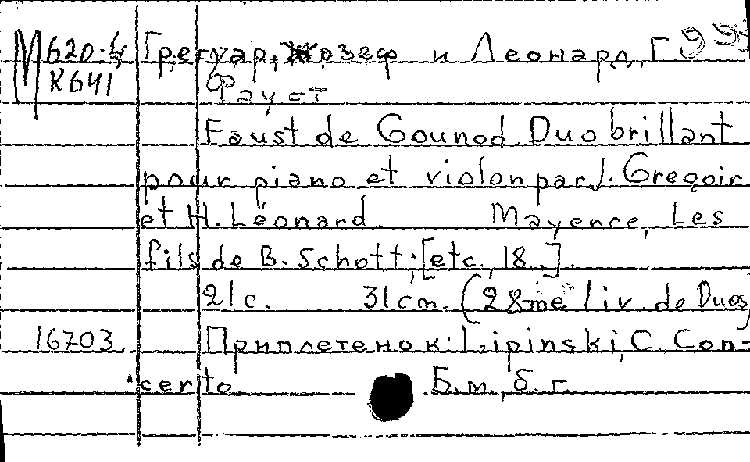 М620-4 Грегуар, Жозеф и Леонард, Г 99
К641 Фауст
Faust de Gounod Duo brillant
pour piano et violon par J. Gregoir
et H. Léonard Mayence, Les
fils de B. Schott; [etc., 18 ].
21 с. 31 cm. (28me liv. de Duos)
16703 Приплетено к: Lipinski, C. Con-
certo Б.м., б.г.